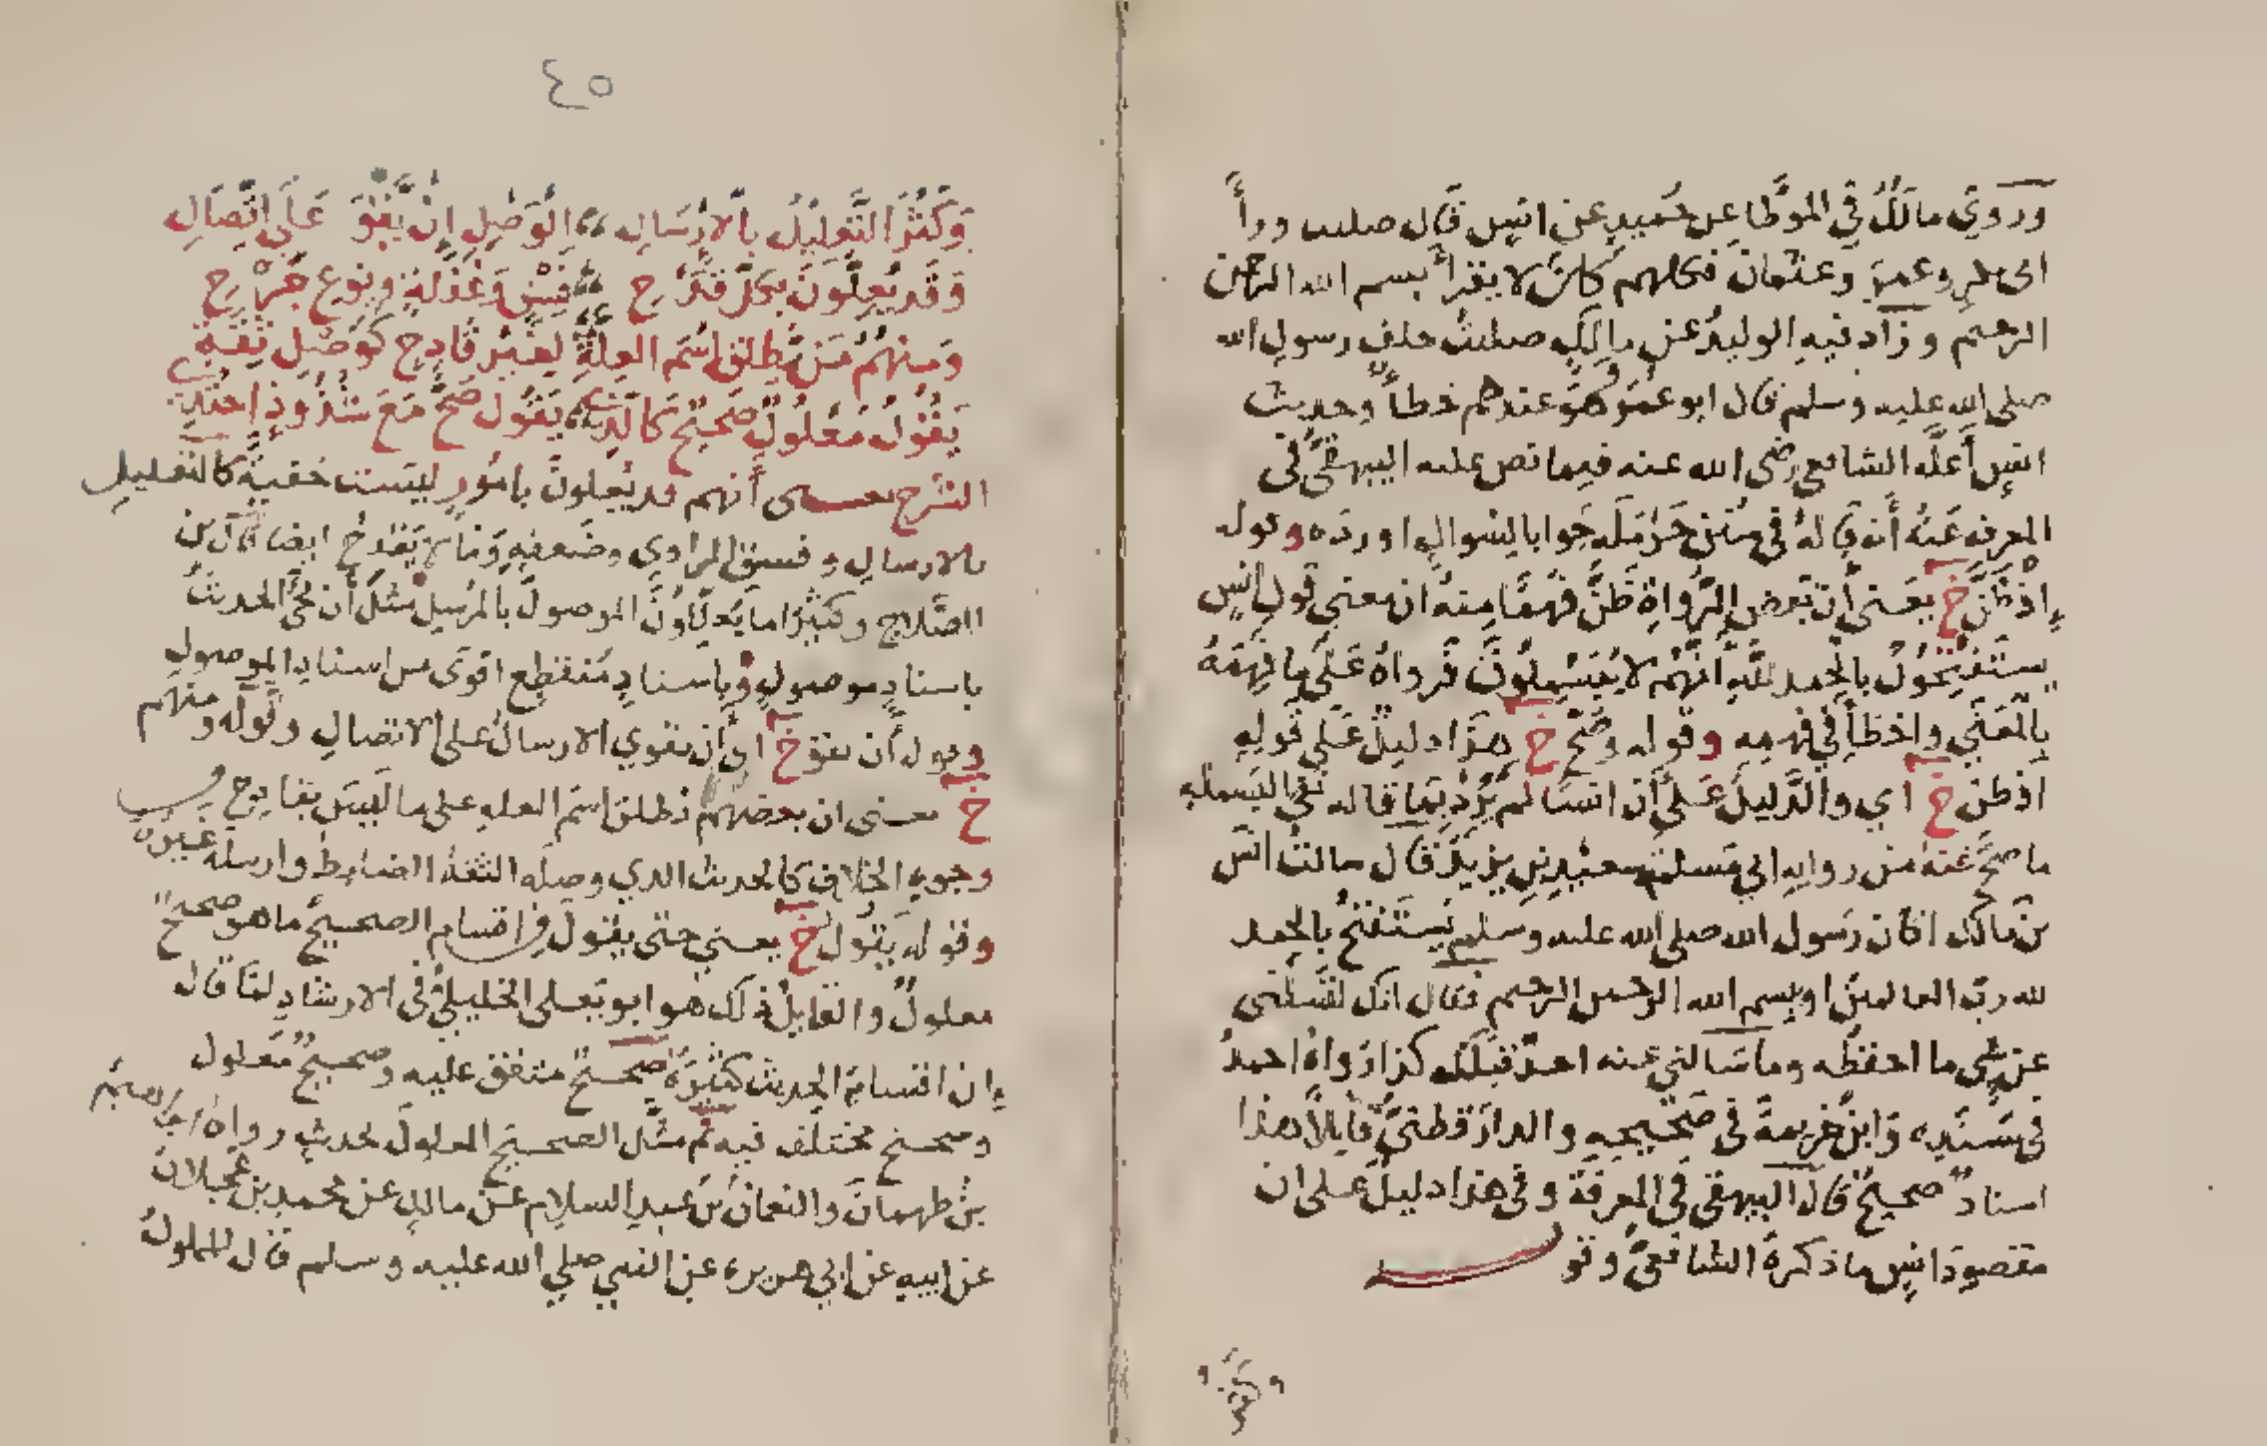 وروى مالك في الموطا عن حميد عن انس قال صليت ورأ
ابى بكر وعمر وعثمان فكلهم كان لا يقرأ بسم الله الرحمن
الرحيم وزاد فيه الوليد عن مالك صليت خلف رسول الله
صلى الله عليه وسلم قال ابو عمر وهو عندهم خطأ وحديث
انس أعلّه الشافعي رضى الله عنه فيما نص عليه البيهقي في
المعرفه عنه أنه قاله في سنن حرمله جوابا لسوال اورده وقوله
إذ ظن خ يعني أن بعض الرواة ظن فهما منه ان معنى قول انس
يستفتحون بالحمد لله أنهم لا يبسملون فرواه على ما فهمه
بالمعنى واخطأ في فهمه وقوله وصح خ هذا دليل على قوله
اذ ظن خ اي والدليل على أن انسا لم يرد بما قاله نفي البسمله
ما صح عنه من روايه ابي مسلمة سعيد بن يزيد قال سالت انس
بن مالك اكان رسول الله صلى الله عليه وسلم يستفتح بالحمد
لله رب العالمين او بسم الله الرحمن الرحيم فقال انك لتسئلنى
عن شي ما احفظه وما سالني عنه احد قبلك كذا رواه احمد
في مسنده وابن خزيمة في صحيحه والدارقطني قايلا هذا
اسناد صحيح قال البيهقي في المعرفة وفي هذا دليل على ان
مقصود انس ما ذكره الشافعي وقو
٤٥
وكثر التعليل بالارسال للوصل إن يقو على اتصال
وقد يعلون بكل قدح فسق وغفلة ونوع جرح
ومنهم من يطلق اسم العلة لغير قادح كوصل ثقة
يقول معلول صحيح كالذي يقول صح مع شذوذ احتذي
الشرح يعنى أنهم قد يعلون بامور ليست خفية كالتعليل
بالارسال وفسق الراوي وضعفه وبما يقدح ايضا قال بن
الصلاح وكثيرا ما يعللون الموصول بالمرسل مثل أن يجي الحديث
باسناد موصول وباسناد منقطع اقوى من اسناد الموصول
وقوله أن يقو خ اى أن يقوي الارسال على الاتصال وقوله ومنهم
خ يعنى ان بعضهم يطلق اسم العله على ما ليس بقادح من
وجوه الخلاف كالحديث الذي وصله الثقة الضابط وارسله غيره
وقوله يقول خ يعني حتى يقول في اقسام الصحيح ما هو صحيح
معلول والقايل ذلك هو ابو يعلى الخليلي في الارشاد لما قال
إن اقسام الحديث كثيرة صحيح متفق عليه وصحيح معلول
وصحيح مختلف فيه ثم مثل الصحيح المعلول بحديث رواه ابراهيم
بن طهمان والنعمان بن عبد السلام عن مالك عن محمد بن عجلان
عن ابيه عن ابي هريره عن النبي صلي الله عليه وسلم قال للملوك